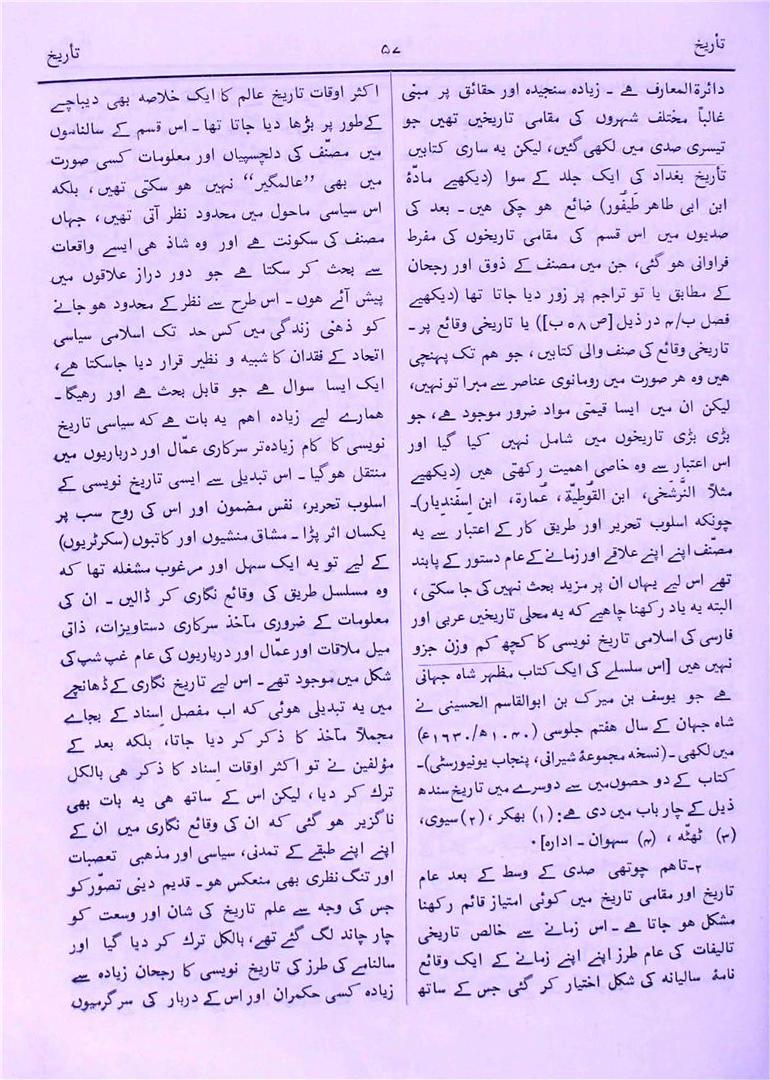 تأریخ
۵۷
تأریخ
دائرۃالمعارف ہے ۔ زیادہ سنجیدہ اور حقائق پر مبنی
غالباً مختلف شہروں کی مقامی تاریخیں تھیں جو
تیسری صدی میں لکھی گئیں، لیکن یہ ساری کتابیں
تأریخ بغداد کی ایک جلد کے سوا (دیکھیے مادّۂ
ابن ابی طاهر طَیفُور) ضائع ہو چکی ہیں ۔ بعد کی
صدیوں میں اس قسم کی مقامی تاریخوں کی مفرط
فراوانی ہو گئی، جن میں مصنف کے ذوق اور رجحان
کے مطابق یا تو تراجم پر زور دیا جاتا تھا (دیکھیے
فصل ب/۴ در ذیل [ص ۵۸ ب]) یا تاریخی وقائع پر ۔
تاریخی وقائع کی صنف والی کتابیں، جو ہم تک پہنچی
ہیں وہ ہر صورت میں رومانوی عناصر سے مبرا تو نہیں،
لیکن ان میں ایسا قیمتی مواد ضرور موجود ہے، جو
بڑی بڑی تاریخوں میں شامل نہیں کیا گیا اور
اس اعتبار سے وہ خاصی اہمیت رکھتی ہیں (دیکھیے
مثلاً النَّرشَخی، ابن القُوطِیَّة، عُمارة، ابن اِسفَندیار)۔
چونکہ اسلوب تحریر اور طریق کار کے اعتبار سے یہ
مصنّف اپنے اپنے علاقے اور زمانے کے عام دستور کے پابند
تھے اس لیے یہاں ان پر مزید بحث نہیں کی جا سکتی،
البتہ یہ یاد رکھنا چاہیے کہ یہ محلی تاریخیں عربی اور
فارسی کی اسلامی تاریخ نویسی کا کچھ کم وزن جزو
نہیں ہیں [اس سلسلے کی ایک کتاب مظہر شاہ جہانی
ہے جو یوسف بن میرک بن ابوالقاسم الحسینی نے
شاہ جہان کے سال ہفتم جلوسی (۱۰۴۰ھ/۱۶۳۰ء)
میں لکھی ۔(نسخہ مجموعۂ شیرانی، پنجاب یونیورسٹی)۔
کتاب کے دو حصوں میں سے دوسرے میں تاریخ سندھ
ذیل کے چار باب میں دی ہے: (۱) بھکر، (۲) سیوی،
(۳) ٹھٹہ، (۴) سہوان ۔ ادارہ]۔
۲۔تاہم چوتھی صدی کے وسط کے بعد عام
تاریخ اور مقامی تاریخ میں کوئی امتیاز قائم رکھنا
مشکل ہو جاتا ہے ۔ اس زمانے سے خالص تاریخی
تالیفات کی عام طرز اپنے اپنے زمانے کے ایک وقائع
نامۂ سالیانہ کی شکل اختیار کر گئی جس کے ساتھ
اکثر اوقات تاریخ عالم کا ایک خلاصہ بھی دیباچے
کے طور پر بڑھا دیا جاتا تھا ۔ اس قسم کے سالناموں
میں مصنّف کی دلچسپیاں اور معلومات کسی صورت
میں بھی ”عالمگیر“ نہیں ہو سکتی تھیں، بلکہ
اس سیاسی ماحول میں محدود نظر آتی تھیں، جہاں
مصنف کی سکونت ہے اور وہ شاذ ہی ایسے واقعات
سے بحث کر سکتا ہے جو دور دراز علاقوں میں
پیش آئے ہوں ۔ اس طرح سے نظر کے محدود ہو جانے
کو ذہنی زندگی میں کس حد تک اسلامی سیاسی
اتحاد کے فقدان کا شبیہ و نظیر قرار دیا جاسکتا ہے،
ایک ایسا سوال ہے جو قابل بحث ہے اور رهیگا ۔
ہمارے لیے زیادہ اہم یہ بات ہے کہ سیاسی تاریخ
نویسی کا کام زیادہ تر سرکاری عمّال اور درباریوں میں
منتقل ہوگیا ۔ اس تبدیلی سے ایسی تاریخ نویسی کے
اسلوب تحریر، نفس مضمون اور اس کی روح سب پر
یکساں اثر پڑا ۔ مشاق منشیوں اور کاتبوں (سکرٹریوں)
کے لیے تو یہ ایک سہل اور مرغوب مشغلہ تھا کہ
وہ مسلسل طریق کی وقائع نگاری کر ڈالیں ۔ ان کی
معلومات کے ضروری مآخذ سرکاری دستاویزات، ذاتی
میل ملاقات اور عمّال اور درباریوں کی عام غپ شپ کی
شکل میں موجود تھے ۔ اس لیے تاریخ نگاری کے ڈھانچے
میں یہ تبدیلی ہوئی کہ اب مفصل اِسناد کے بجاے
مجملاً مآخذ کا ذکر کر دیا جاتا، بلکہ بعد کے
مؤلفین نے تو اکثر اوقات اِسناد کا ذکر ہی بالکل
ترک کر دیا، لیکن اس کے ساتھ ہی یہ بات بھی
ناگزیر ہو گئی کہ ان کی وقائع نگاری میں ان کے
اپنے اپنے طبقے کے تمدنی، سیاسی اور مذہبی تعصبات
اور تنگ نظری بھی منعکس ہو ۔ قدیم دینی تصوّر کو
جس کی وجہ سے علم تاریخ کی شان اور وسعت کو
چار چاند لگ گئے تھے، بالکل ترک کر دیا گیا اور
سالنامے کی طرز کی تاریخ نویسی کا رجحان زیادہ سے
زیادہ کسی حکمران اور اس کے دربار کی سرگرمیوں